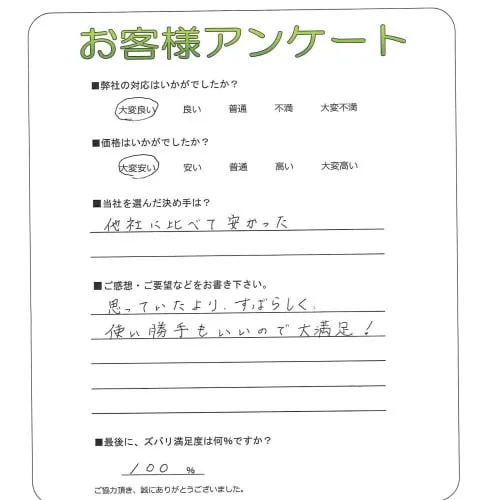 お客様アンケート
■弊社の対応はいかがでしたか？
大変良い 良い 普通 不満 大変不満
■価格はいかがでしたか？
大変安い 安い 普通 高い 大変高い
■当社を選んだ決め手は？
他社に比べて安かった
■ご感想・ご要望などをお書き下さい。
思っていたより、すばらしく、
使い勝手もいいので大満足！
■最後に、ズバリ満足度は何%ですか？
100 %
ご協力頂き、誠にありがとうございました。